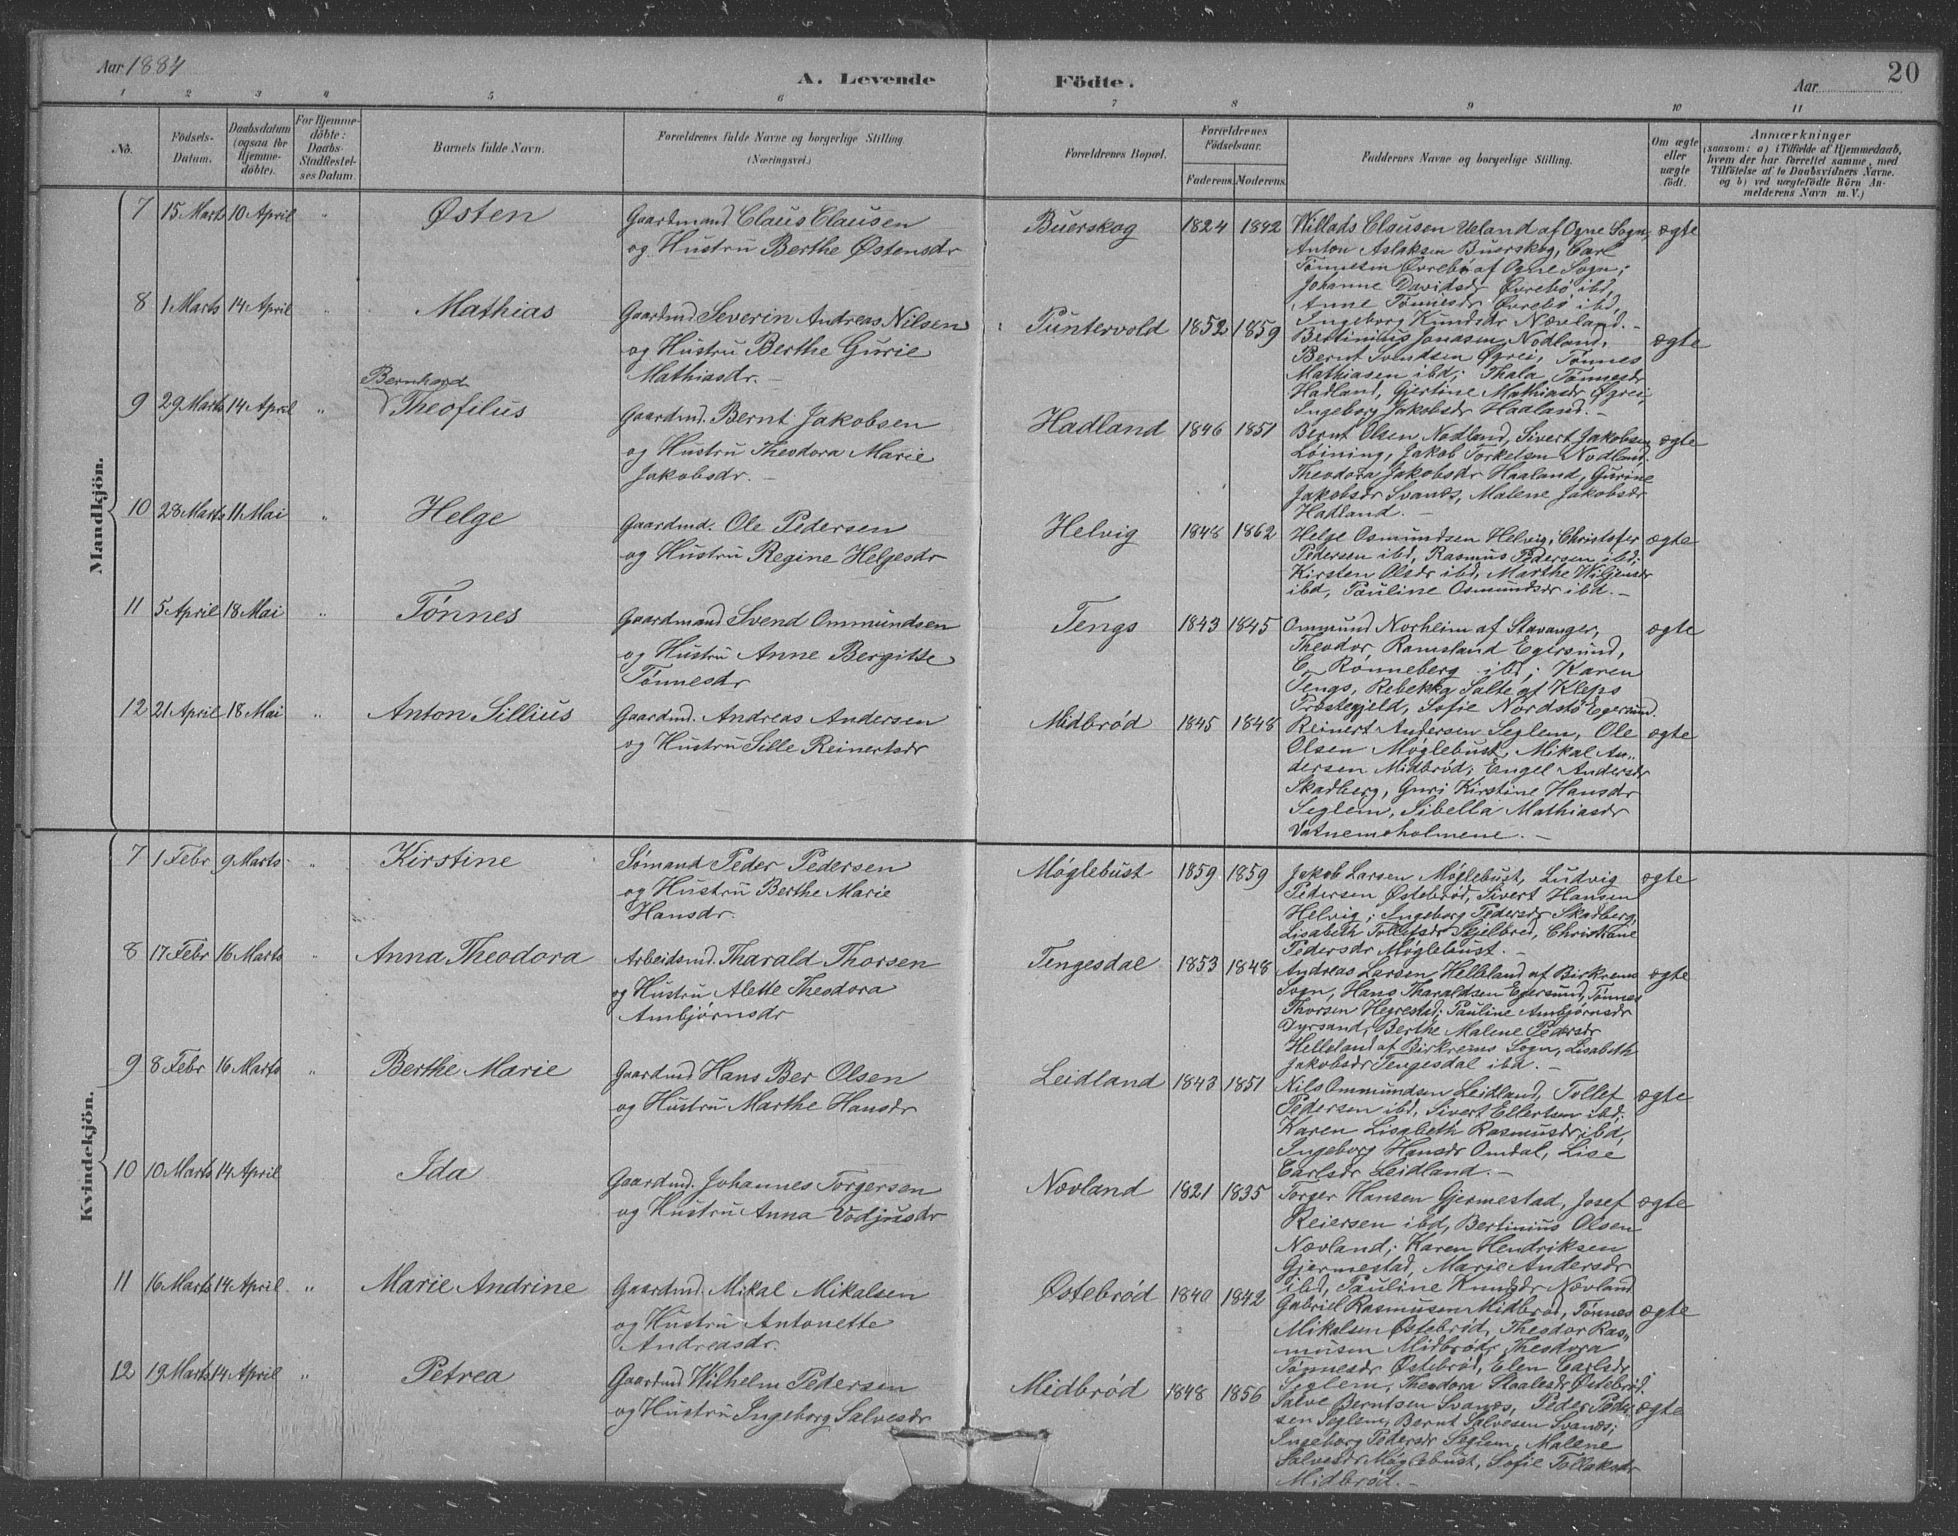 Aar 1884
A. Levende Födte.
Aar
20
1 2 3 4 5 6 7 8 9 10 11
No.
Födsels-
Datum.
Daabsdatum
(ogsaa for
Hjemme-
döbte).
For Hjemme-
döbte:
Daabs-
Stadfæstel-
ses Datum.
Barnets fulde Navn.
Forældrenes fulde Navne og borgerlige Stilling
(Næringsvei.)
Forældrenes Bopæl.
Forældrenes
Födselsaar.
Faderens. Moderens.
Faddernes Navne og borgerlige Stilling.
Om ægte
eller
uægte
födt.
Anmærkninger
(saasom: a) i Tilfælde af Hjemmedaab,
hvem der har forrettet samme, med
Tilföielse af to Daabsvidners Navne.
og b) ved uægtefödte Börn An-
melderens Navn m. V.)
Mandkjön.
7 15 Marts 10 April " Østen
Gaardmand Claus Clausen
og Hustru Berthe Østensdr
Buerskog 1824 1842
Willads Clausen Ueland af Ogne Sogn,
Anton Aslaksen Buerskog, Carl
Tønnesen Øvrebø af Ogne Sogn;
Johanne Davidsdr Øvrebø ibd,
Anne Tønnesdr Øvrebø ibd,
Ingeborg Knudsdr Nævland.-
ægte
8 1 Marts 14 April " Mathias
Gaardmd Severin Andreas Nilsen
og Hustru Berthe Gurie
Mathiasdr.-
Puntervold 1852 1859
Bertinius Jonasen Nodland,
Bernt Svendsen Øgrei, Tønnes
Mathiasen ibd; Thala Tønnesdr
Hadland, Gjertine Mathiasdr Øgrei,
Ingeborg Jakobsdr Haaland.-
ægte
9 29 Marts 14 April " Bernhard
Theofilus
Gaardmd. Bernt Jakobsen
og Hustru Theodora Marie
Jakobsdr.-
Hadland 1846 1851
Bernt Olsen Nodland, Sivert Jakobsen
Løining, Jakob Torkelsen Nodland;
Theodora Jakobsdr Haaland, Gurine
Jakobsdr Svanes, Malene Jakobsdr
Hadland.-
ægte
10 28 Marts 11 Mai " Helge
Gaardmd. Ole Pedersen
og Hustru Regine Helgesdr
Helvig 1848 1862
Helge Osmundsen Helvig, Christofer
Pedersen ibd, Rasmus Pedersen ibd;
Kirsten Olsdr ibd, Marthe Wiljensdr
ibd, Pauline Osmundsdr ibd.-
ægte
11 5 April 18 Mai " Tønnes
Gaardmand Svend Ommundsen
og Hustru Anne Bergitte
Tønnesdr
Tengs 1843 1845
Ommund Norheim af Stavanger,
Theodor Ramsland Egersund,
C. Rønneberg ibd; Karen
Tengs, Rebekka Salte af Klepps
Præstegjeld, Sofie Nordstø Egersund.
ægte
12 21 April 18 Mai " Anton Sillius
Gaardmd. Andreas Andersen
og Hustru Sille Reinertsdr
Midbrød 1845 1848
Reinert Andersen Seglem, Ole
Olsen Møglebust, Mikal An-
dersen Midbrød; Engel Andersdr
Skadberg, Guri Kirstine Hansdr
Seglem, Sibella Mathiasdr
Vatnemoholmene.-
ægte
Kvindekjön.
7 1 Febr 9 Marts " Kirstine
Sømand Peder Pedersen
og Hustru Berthe Marie
Hansdr.
Møglebust 1859 1859
Jakob Larsen Møglebust, Ludvig
Pedersen Østebrød, Sivert Hansen
Helvig; Ingeborg Pedersdr Skadberg,
Lisabeth Tollefsdr Sejelbred, Christiane
Pedersdr Møglebust.-
ægte
8 17 Febr 16 Marts " Anna Theodora
Arbeidsmd. Tharald Thorsen
og Hustru Alette Theodora
Ambjørnsdr
Tengesdal 1853 1848
Andreas Larsen Helleland af Birkrems
Sogn, Hans Tharaldsen Egersund, Tønnes
Thorsen Hegrestad; Pauline Ambjørnsdr
Dyrsand, Berthe Malene Pedersdr
Helleland af Birkrems Sogn, Lisabeth
Jakobsdr Tengesdal ibd.-
ægte
9 8 Febr 16 Marts " Berthe Marie
Gaardmd Hans Ber Olsen
og Hustru Marthe Hansdr
Leidland 1843 1851
Nils Ommundsen Leidland, Tollef
Pedersen ibd, Sivert Ellertsen ibd;
Karen Lisabeth Rasmusdr ibd,
Ingeborg Hansdr Omdal, Lise
Carlsdr Leidland.-
ægte
10 10 Marts 14 April Ida
Gaardmd. Johannes Torgersen
og Hustru Anna Vodjusdr
Nævland 1821 1835
Torger Hansen Gjermestad, Josef
Reiersen ibd, Bertinius Olsen
Nævland; Karen Hendriksen
Gjermestad, Marie Andersdr
ibd, Pauline Knudsdr Nævland
ægte
11 16 Marts 14 April " Marie Andrine
Gaardmd. Mikal Mikalsen
og Hustru Antonette
Andreasdr.
Østebrød 1840 1842
Gabriel Rasmusen Midbrød, Tønnes
Mikalsen Østebrød, Theodor Ras-
musen Midbrød; Theodora
Tønnesdr Østebrød, Elen Carlsdr
Seglem, Theodora Staalesdr Østebrød.
ægte
12 19 Marts 14 April " Petrea
Gaardmd Wilhelm Pedersen
og Hustru Ingeborg Salvesdr
Midbrød 1848 1856
Salve Berntsen Svanes, Peder Peder-
sen Seglem, Bernt Salvesen Svanes;
Ingeborg Pedersdr Seglem, Malene
Salvesdr Møglebust, Sofie Tollaksdr
Midbrød.-
ægte